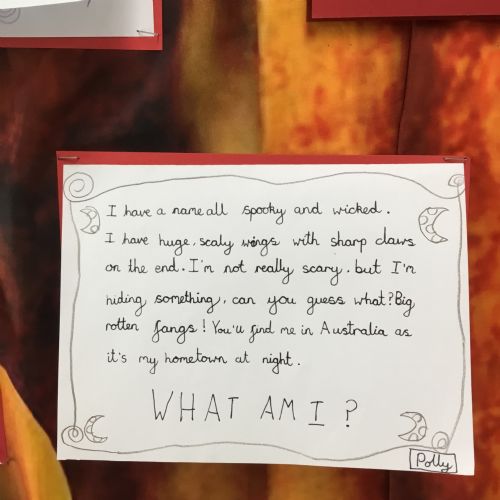 I have a name all spooky and wicked.
I have huge, scaly wings with sharp claws
on the end. I'm not really scary, but I'm
hiding something, can you guess what? Big
rotten fangs! You'll find me in Australia as
it's my hometown at night.
WHAT AM I?
Polly